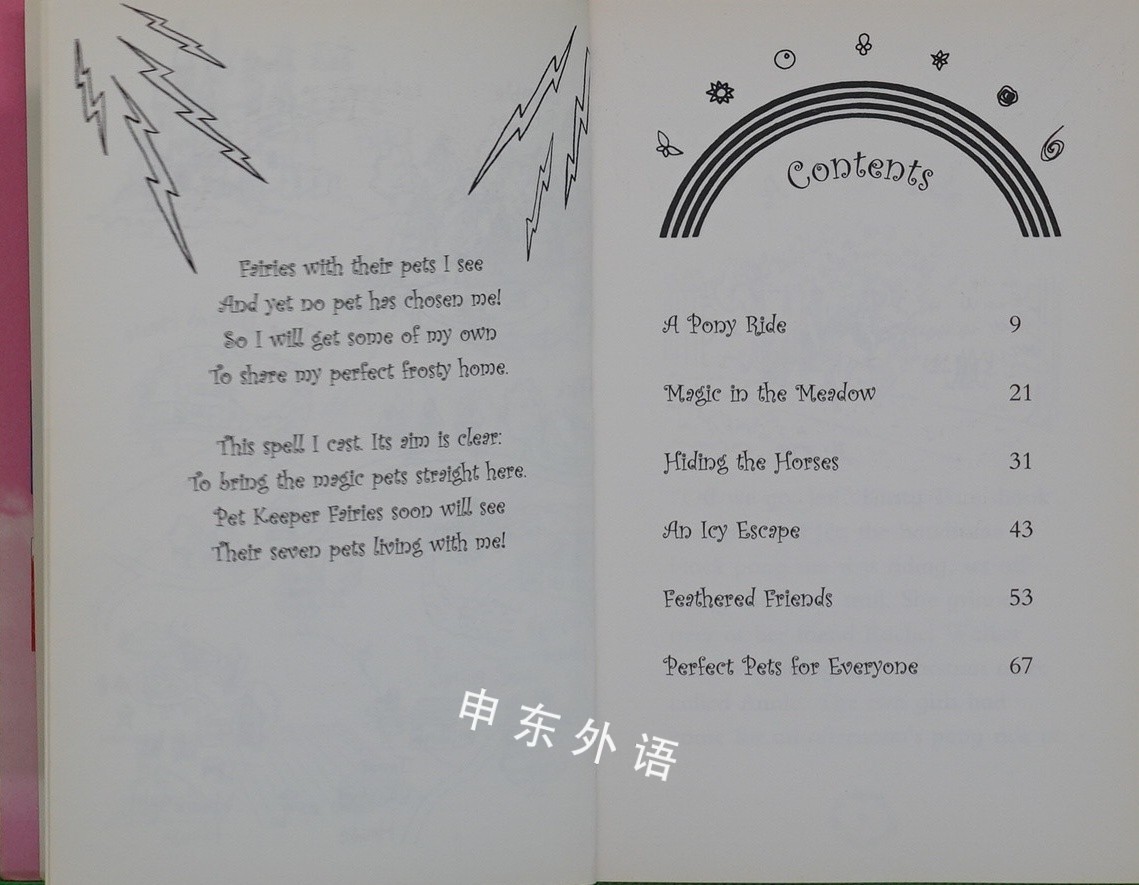 Fairies with their pets I see
And yet no pet has chosen me!
So I will get some of my own
To share my perfect frosty home.
This spell I cast. Its aim is clear:
To bring the magic pets straight here.
Pet Keeper Fairies soon will see
Their seven pets living with me!
Contents
A Pony Ride 9
Magic in the Meadow 21
Hiding the Horses 31
An Icy Escape 43
Feathered Friends 53
Perfect Pets for Everyone 67
申东外语